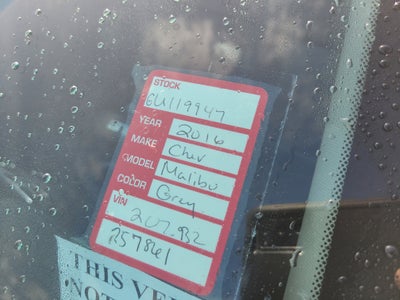 STOCK
GU119947
YEAR 2016
MAKE Chev
MODEL Malibu
COLOR Grey
VIN 207-932
257861
THIS VE
NOT